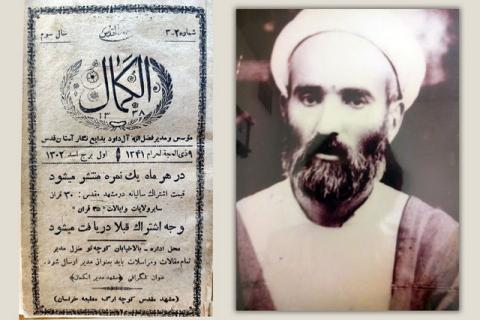 شماره ۲-۳
سال سوم
الکمال
۱۳۳۸
مؤسس و مدیر فضل‌الله آل‌داود بدایع نگار آستان قدس
ذی الحجة الحرام ۱۳۴۱
اول برج اسد ۱۳۰۲
در هر ماه یك نمره منتشر میشود
قیمت اشتراك سالیانه در مشهد مقدس: ۳۰ قران
سایر ولایات و ایالات ۳۵ قران
وجه اشتراك قبلا دریافت میشود
محل اداره ـ بالاخیابان کوچه نو منزل مدیر
تمام مقالات و مراسلات باید بعنوانی مدیر ارسال شود.
عنوان تلگرافی «مشهد مدیر الکمال»
(مشهد مقدس کوچه ارگ مطبعه خراسان)